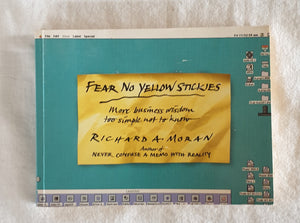 File Edit View Label Special
FEAR NO YELLOW STICKIES
More business wisdom
too simple not to know
RICHARD A. MORAN
Author of
NEVER CONFUSE A MEMO WITH REALITY